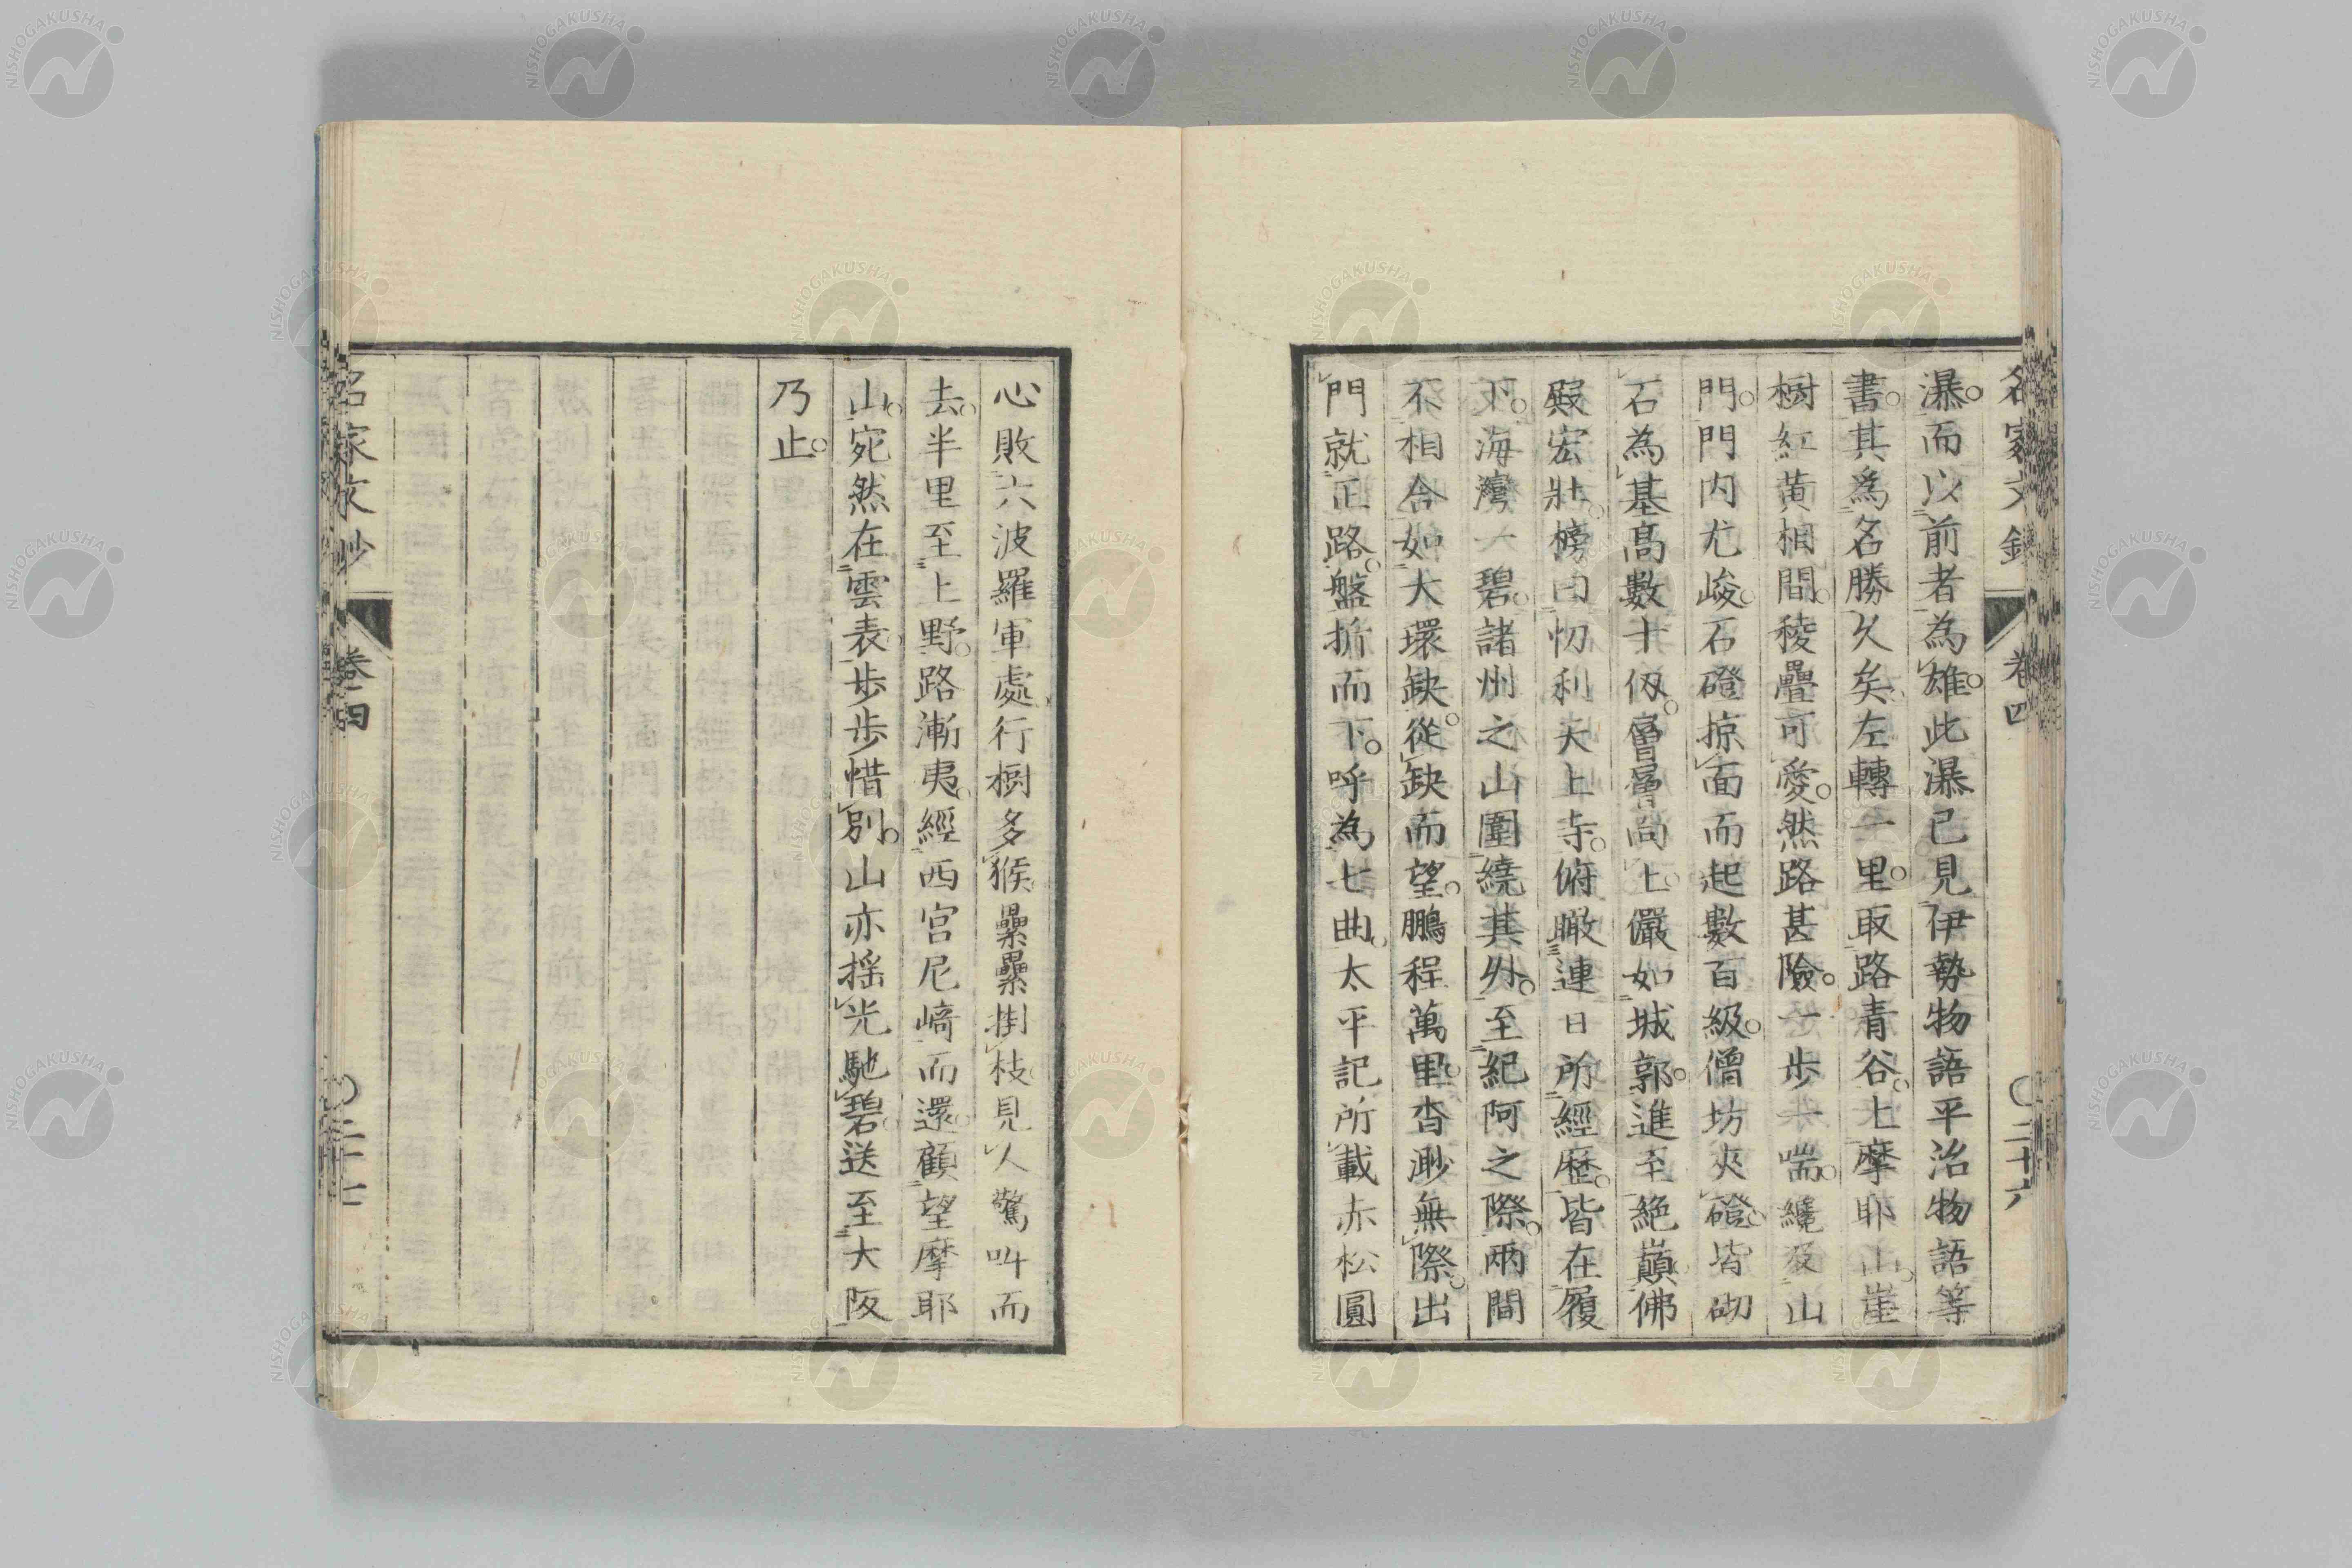 瀑。而以前者為雄。此瀑已見伊勢物語平治物語等
書。其爲名勝久矣左轉一里。取路青谷。上摩耶山。崖
樹紅黃相間。稜疊可愛。然路甚險。一步一喘。纔及山
門。門內尤峻。石磴掠面而起數百級。僧坊夾磴。皆砌
石為基高數十仭。層層向上。儼如城郭。進至絕巔。佛
殿宏壯。榜曰忉利天上寺。俯瞰連日所經歷。皆在履
下。海灣一碧。諸州之山圍繞其外。至紀阿之際。兩間
不相合。如大環缺。從缺而望。鵬程萬里。杳渺無際。出
門就正路。盤折而下。呼為七曲。太平記所載赤松圓
心敗六波羅軍處。行樹多猴。纍纍掛枝。見人驚叫而
去。半里至上野。路漸夷。經西宮尼﨑而還。顧望摩耶
山。宛然在雲表。步步惜別。山亦搖光馳碧。送至大阪
乃止。
卷四
二十六
名家文抄
卷四
NISHOGAKUSHA